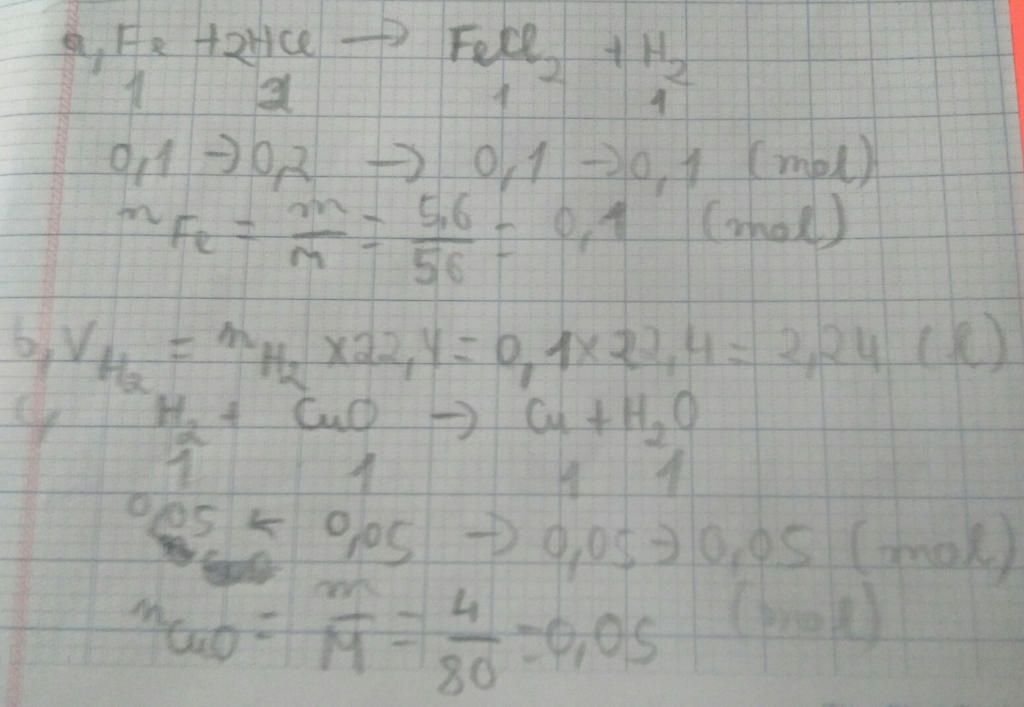 a, Fe + 2HCl → FeCl₂ + H₂
1 2 1 1
0,1 → 0,2 → 0,1 → 0,1 (mol)
nFe = m/M = 5,6/56 = 0,1 (mol)
b, V H₂ = n H₂ x 22,4 = 0,1 x 22,4 = 2,24 (l)
c, H₂ + CuO → Cu + H₂O
1 1 1 1
0,05 ← 0,05 → 0,05 → 0,05 (mol)
nCuO = m/M = 4/80 = 0,05 (mol)